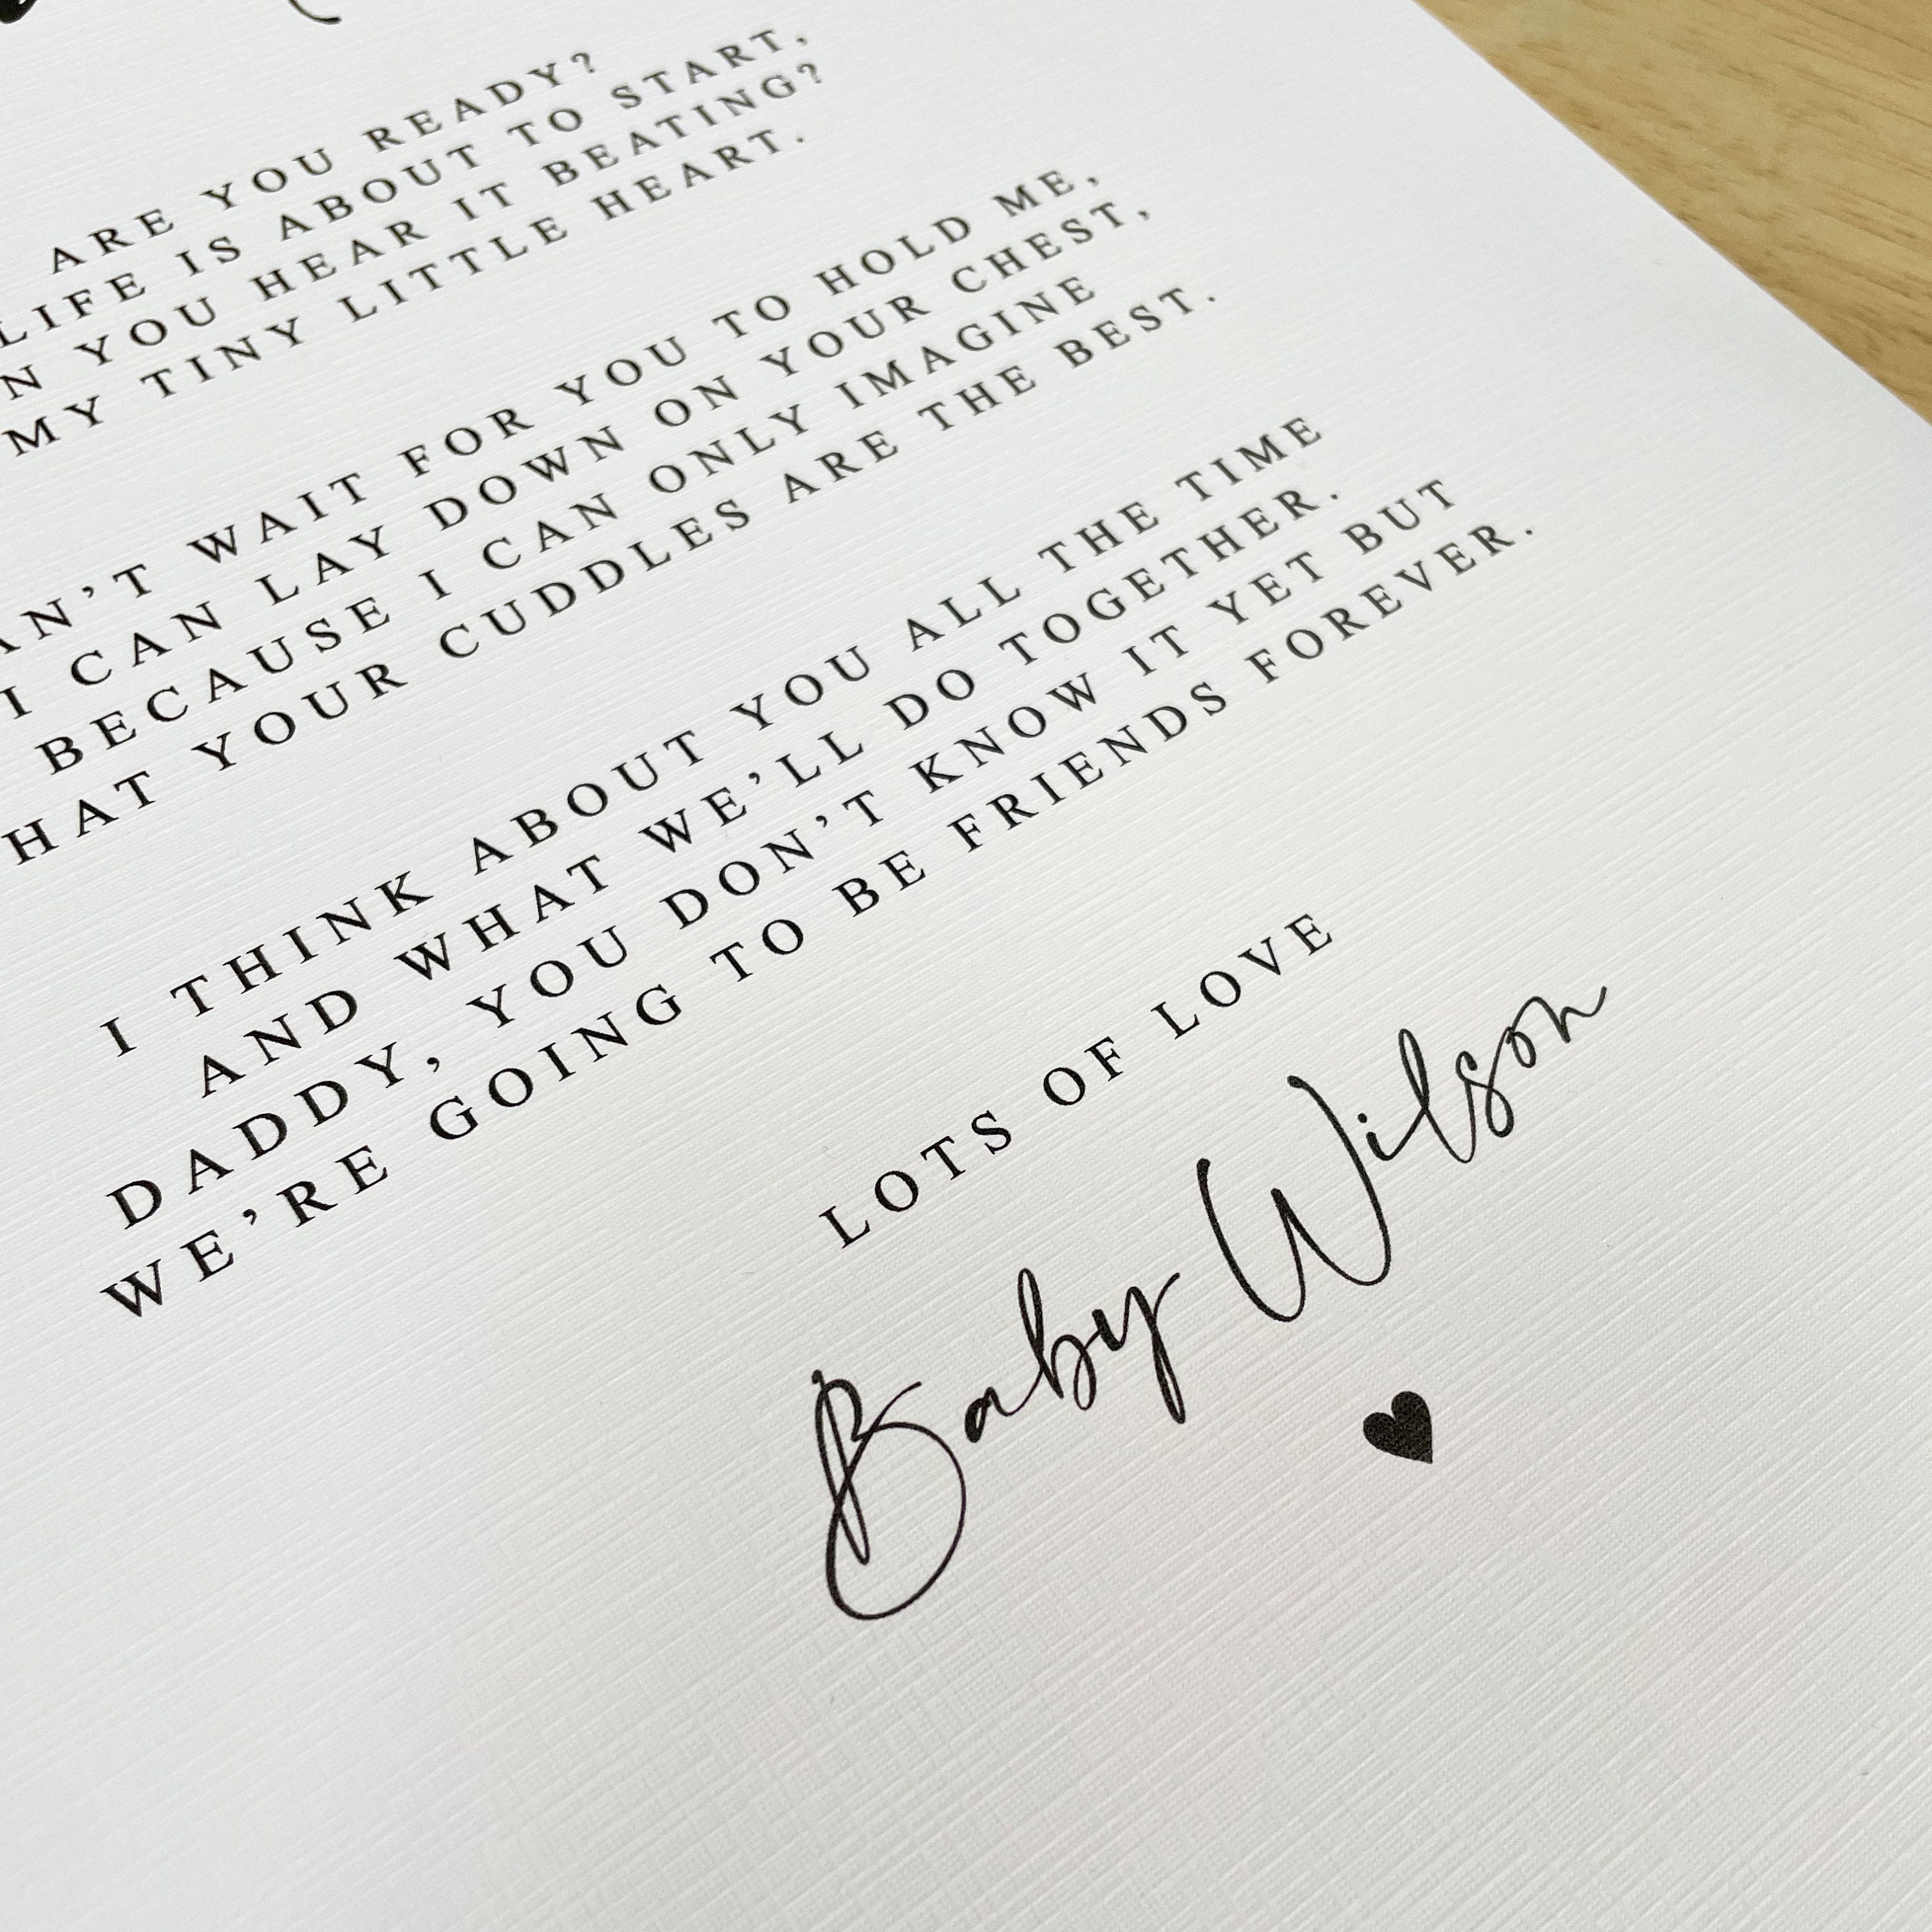 ARE YOU READY?
LIFE IS ABOUT TO START,
YOU HEAR IT BEATING?
MY TINY LITTLE HEART.
WAIT FOR YOU TO HOLD ME,
I CAN LAY DOWN ON YOUR CHEST,
BECAUSE I CAN ONLY IMAGINE
YOUR CUDDLES ARE THE BEST.
I THINK ABOUT YOU ALL THE TIME
AND WHAT WE'LL DO TOGETHER.
DADDY, YOU DON'T KNOW IT YET BUT
WE'RE GOING TO BE FRIENDS FOREVER.
LOTS OF LOVE
Baby Wilson